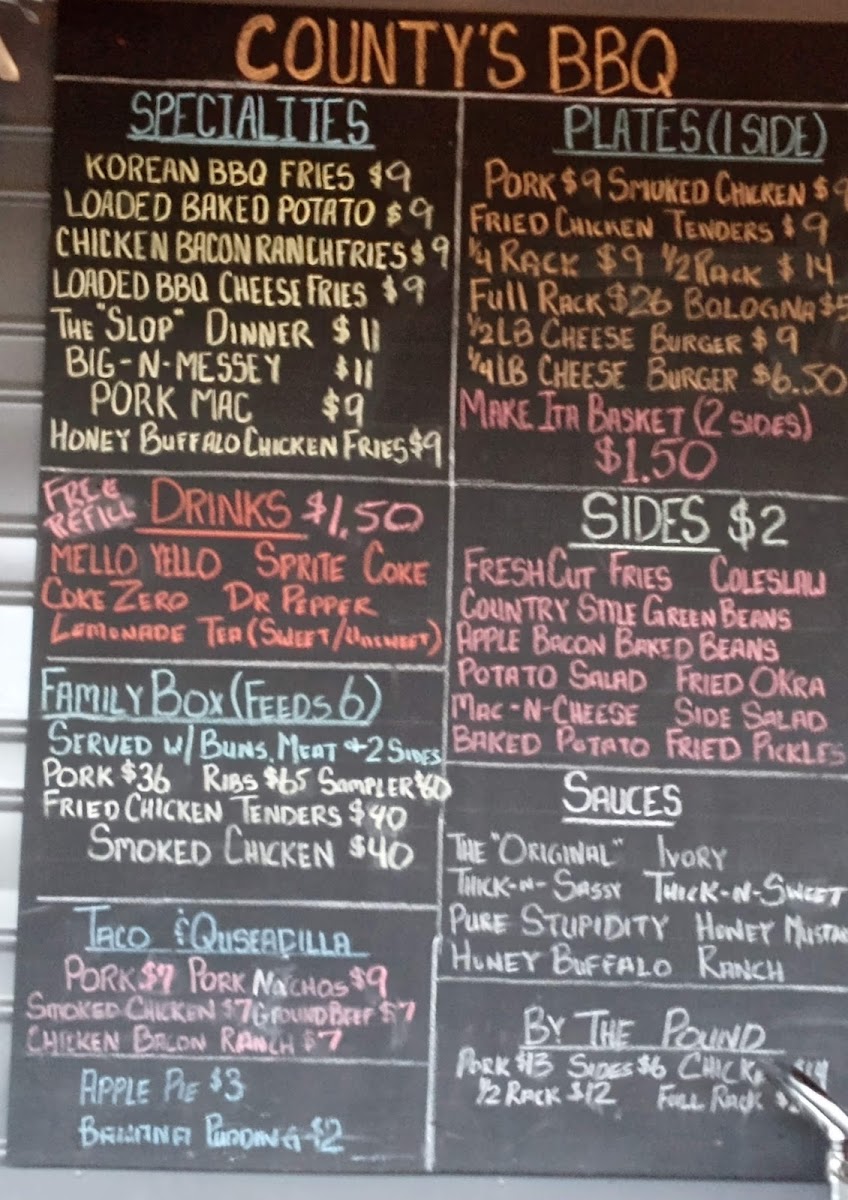 COUNTY'S BBQ
SPECIALITES
KOREAN BBQ FRIES $9
LOADED BAKED POTATO $9
CHICKEN BACON RANCH FRIES $9
LOADED BBQ CHEESE FRIES $9
THE "SLOP" DINNER $11
BIG-N-MESSEY $11
PORK MAC $9
HONEY BUFFALO CHICKEN FRIES $9
FREE REFILL
DRINKS $1.50
MELLO YELLO SPRITE COKE
COKE ZERO DR PEPPER
LEMONADE TEA (SWEET/UNSWEET)
FAMILY BOX (FEEDS 6)
SERVED W/ BUNS, MEAT + 2 SIDES
PORK $36 RIBS $65 SAMPLER $60
FRIED CHICKEN TENDERS $40
SMOKED CHICKEN $40
TACO & QUSEADILLA
PORK $7 PORK NACHOS $9
SMOKED CHICKEN $7 GROUND BEEF $7
CHICKEN BACON RANCH $7
APPLE PIE $3
BANANA PUDDING $2
PLATES (1 SIDE)
PORK $9 SMOKED CHICKEN $9
FRIED CHICKEN TENDERS $9
1/4 RACK $9 1/2 RACK $14
FULL RACK $26 BOLOGNA $5
1/2 LB CHEESE BURGER $9
1/4 LB CHEESE BURGER $6.50
MAKE IT A BASKET (2 SIDES)
$1.50
SIDES $2
FRESH CUT FRIES COLESLAW
COUNTRY STYLE GREEN BEANS
APPLE BACON BAKED BEANS
POTATO SALAD FRIED OKRA
MAC-N-CHEESE SIDE SALAD
BAKED POTATO FRIED PICKLES
SAUCES
THE "ORIGINAL" IVORY
THICK-N-SASSY THICK-N-SWEET
PURE STUPIDITY HONEY MUSTA
HONEY BUFFALO RANCH
BY THE POUND
PORK $13 SIDES $6 CHICK
1/2 RACK $12 FULL RACK